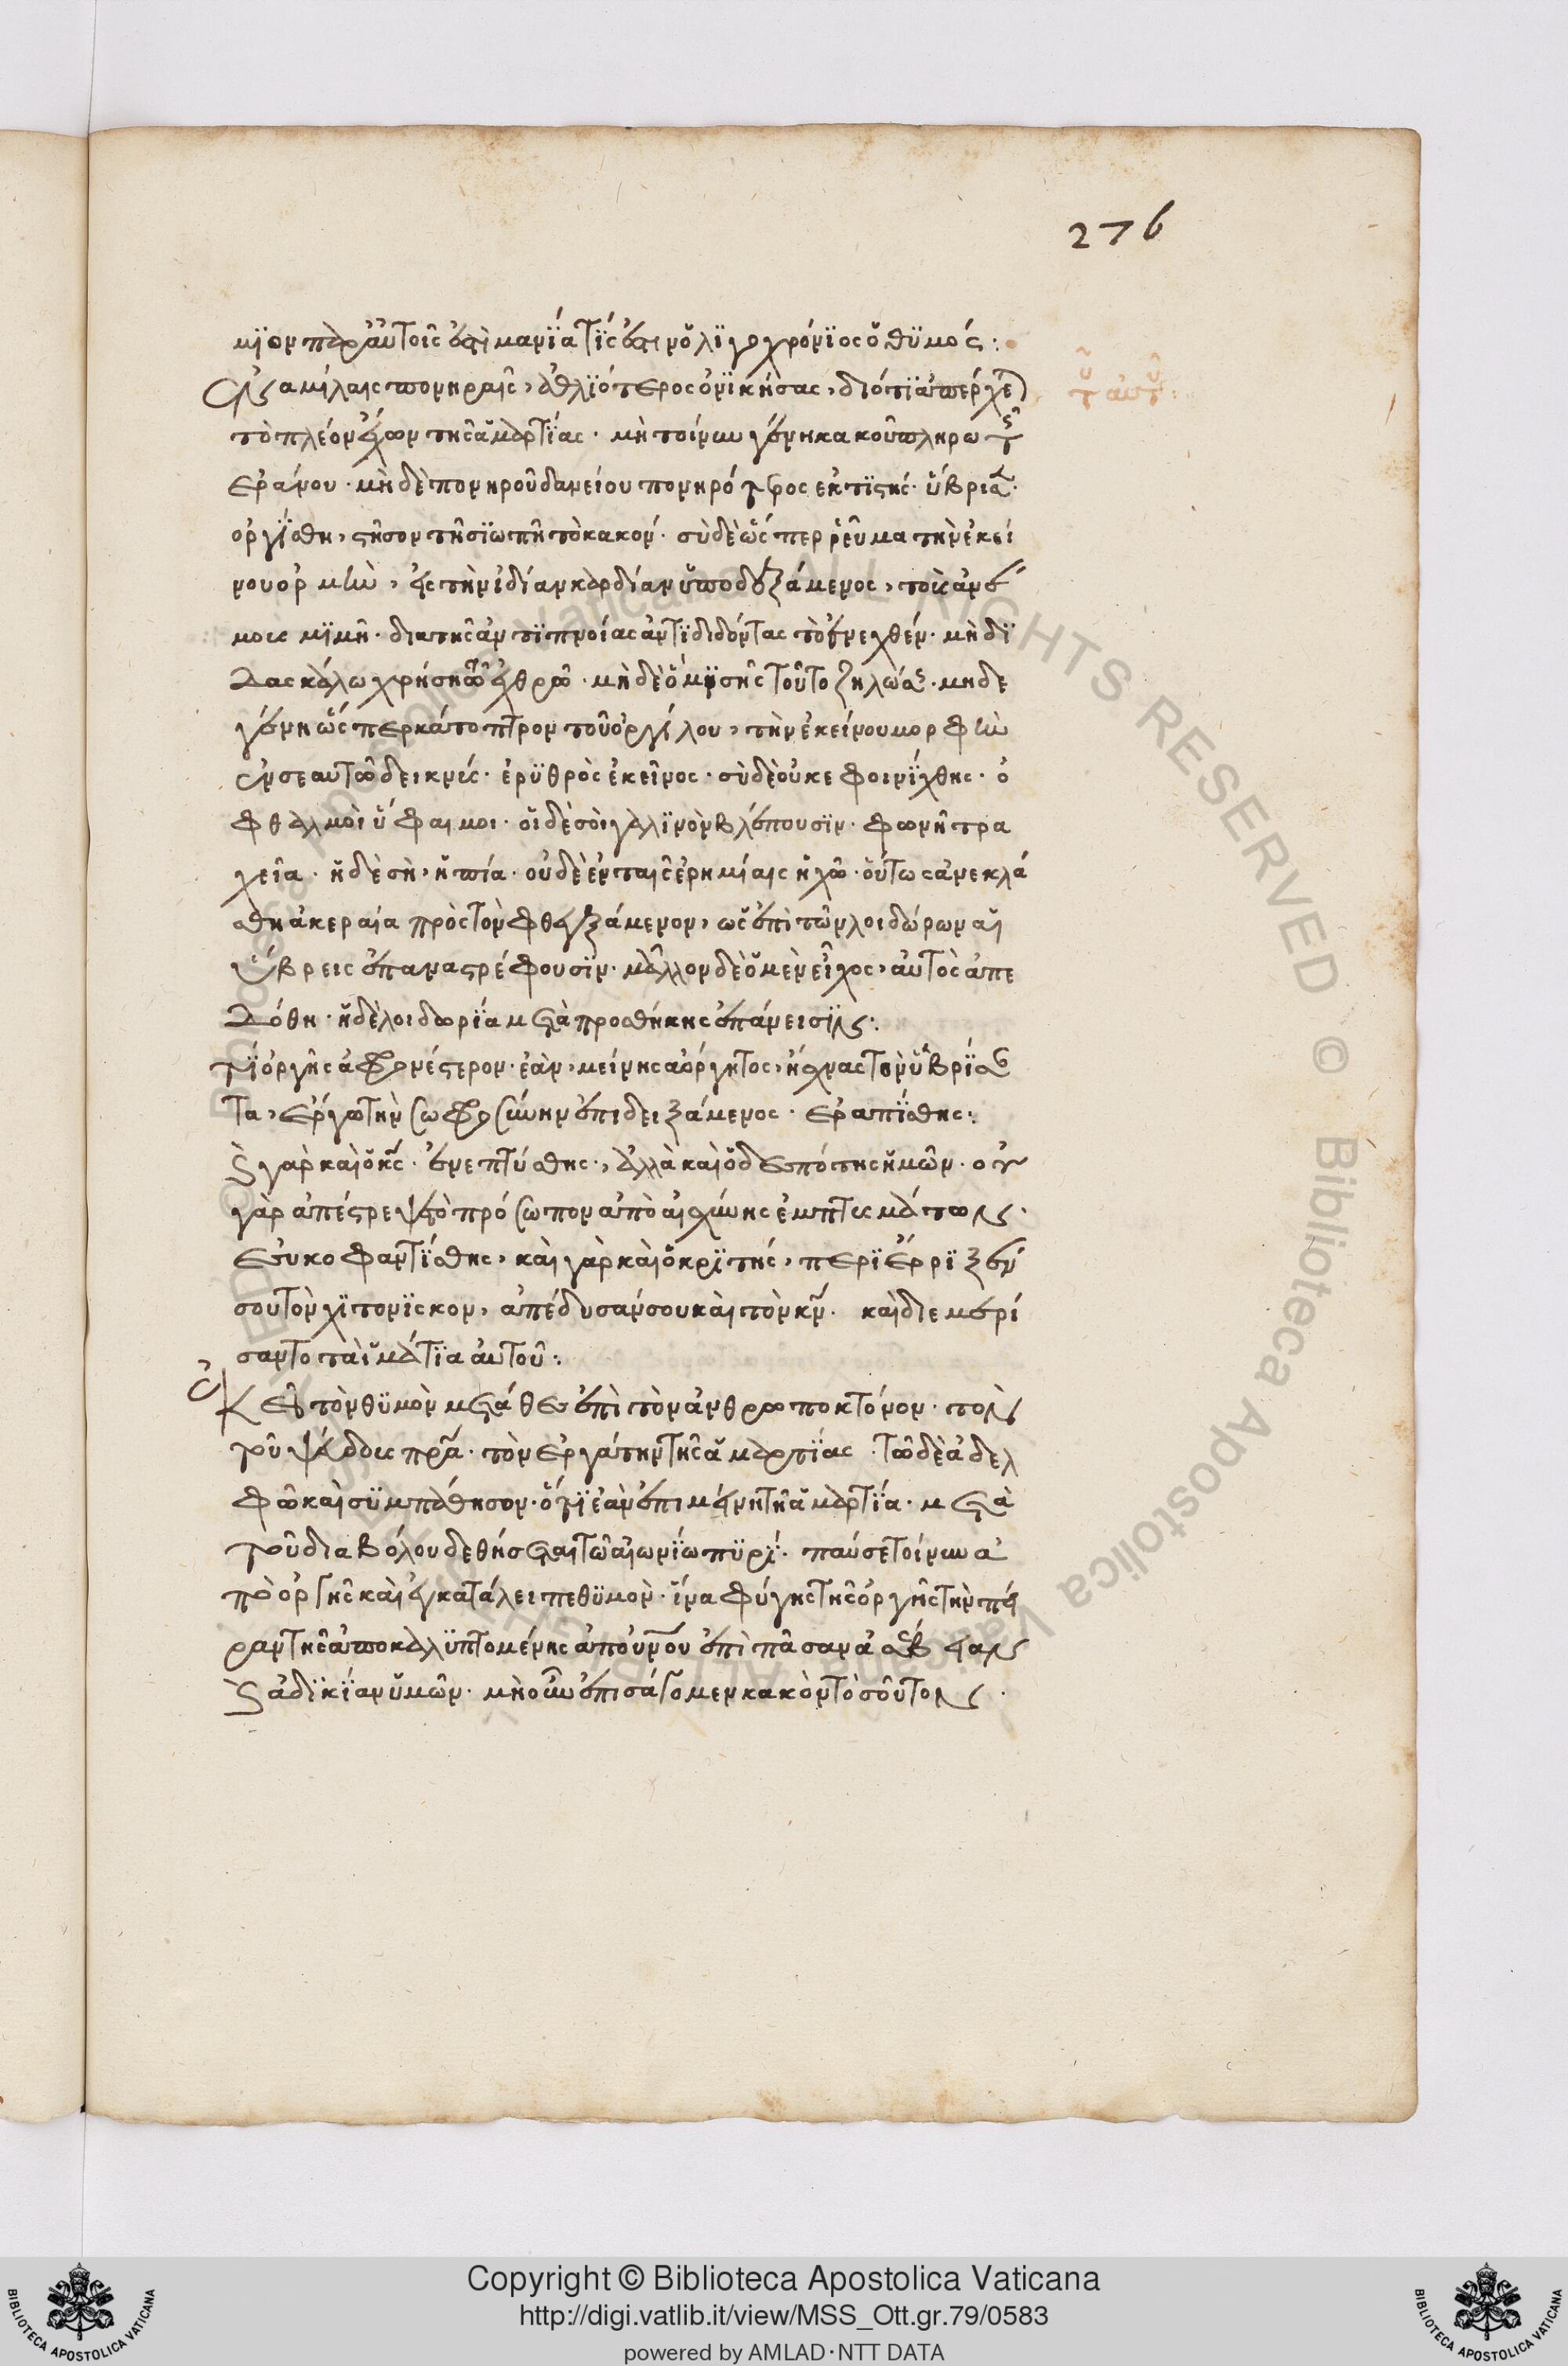 276
μϊον παρ' αὐτοῖς ἐστὶ μανϊά τϊς ἐστιν ὀλϊγοχρόνϊος ὁ θϋμός:
τοῦ αὐτοῦ:
Ἐν ἁμίλαις πονηραῖς, ἀθλϊότερος ὁ νϊκήσας, διότϊ ἀπέρχεται
τὸ πλέον ἔχων τῆς ἁμαρτΐας. μὴ τοίνυν γένη κακοῦ πληρωτὴς
ἐράνου. μὴ δὲ πονηροῦ δανείου πονηρότερος ἐκτϊστής. ὕβρισται.
ὀργΐσθη, στῆσον τῆ σϊωπῆ τὸ κακόν. σὺ δὲ ὥσπερ ῥεῦμα τὴν ἐκεί
νου ὀρμὴν, εἰς τὴν ἰδίαν καρδίαν ὑποδεξάμενος, τοὺς ἀνέ
μους μϊμῆ. δια τῆς ἀντϊπνοίας ἀντϊδιδόντας τὸ ἐνεχθέν. μὴ δϊ
δασκάλω χρήση τῶ ἐχθρῶ. μὴ δὲ ὃ μϊσῆς τοῦτο ζηλώσης. μηδὲ
γένη ὥσπερ κάτοπτρον τοῦ ὀργίλου, τὴν ἐκείνου μορφὴν
ἐν σεαυτῶ δεικνύς. ἐρϋθρὸς ἐκεῖνος. σὺ δὲ οὐκ ἐφοινΐχθης. ὀ
φθαλμοὶ ὕφαιμοι. οἱ δὲ σοὶ γαλϊνὸν βλέπουσϊν. φωνὴ τρα
χεῖα. ἡ δὲ σὴ, ἠπία. οὐδὲ ἐν ταῖς ἐρημίαις ἠχῶ. οὕτως ἀνεκλά
σθη ἀκεραία πρὸς τὸν φθεγξάμενον, ὡς ἐπὶ τῶν λοιδώρων αἱ
ὕβρεις ἐπαναστρέφουσϊν. μᾶλλον δὲ ὁ μὲν εἶχος, αὐτὸς ἀπε
δόθη. ἡ δὲ λοιδωρΐα μετὰ προσθήκης ἐπάνεισϊν:
Τΐ ὀργῆς ἀφρονέστερον. ἐὰν, μείνης ἀόργητος, ἤσχυνας τὸν ὑβρΐσαν
τα, ἔργω τὴν σωφροσύνην ἐπιδειξάμενος. ἐραπΐσθης:
καὶ γὰρ καὶ ὁ κς. ἐνεπτύσθης, ἀλλὰ καὶ ὁ δεσπότης ἡμῶν. οὐ
γὰρ ἀπέστρεψε τὸ πρόσωπον ἀπὸ αἰσχύνης ἐμπτυσμάτων.
ἐσυκοφαντΐσθης, καὶ γὰρ καὶ ὁ κρϊτής, περϊέρρϊξέν
σου τὸν χϊτονΐσκον, ἀπέδυσάν σου καὶ τὸν κν. καὶ διεμερί
σαντο τὰ ἱμάτϊα αὐτοῦ:
τὸν θϋμὸν μετάθες ἐπὶ τὸν ἀνθρωποκτόνον. τὸν
τοῦ ψεύδους πρα. τὸν ἐργάτην τῆς ἁμαρτΐας. τῶ δὲ ἀδελ
φῶ καὶ σϋμπάθησον. ὅτϊ ἐὰν ἐπιμείνη τῆ ἁμαρτΐα. μετὰ
τοῦ διαβόλου δεθήσεται τῶ αἰωνΐω πϋρΐ. παύσε τοίνυν ἀ
πὸ ὀργῆς καὶ ἐγκατάλειπε θϋμὸν. ἵνα φύγης τῆς ὀργῆς τὴν πεῖ
ραν τῆς ἀποκαλϋπτομένης ἀπ' οὐνου ἐπὶ πᾶσαν ἀσέβειαν
καὶ ἀδϊκΐαν ὑμῶν. μὴ οὖν ἐπισάξομεν κακὸν τὸσοῦτον.
Copyright © Biblioteca Apostolica Vaticana
http://digi.vatlib.it/view/MSS_Ott.gr.79/0583
powered by AMLAD·NTT DATA